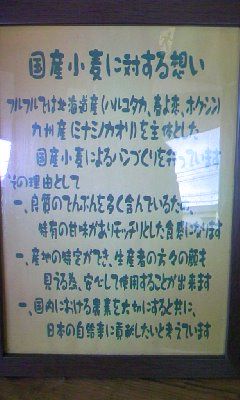 国産小麦に対する想い
フルフルでは北海道産(ハルユタカ、春よ恋、ホクシン)
九州産ミナミノカオリを主体とした
国産小麦によるパンづくりを行っています
その理由として
一、良質のでんぷんを多く含んでいるため、
特有の甘味がありモッチリとした食感になります
一、産地の特定ができ、生産者の方々の顔も
見える為、安心して使用することが出来ます
一、国内における農業を大切にすると共に、
日本の自給率に貢献したいと考えています